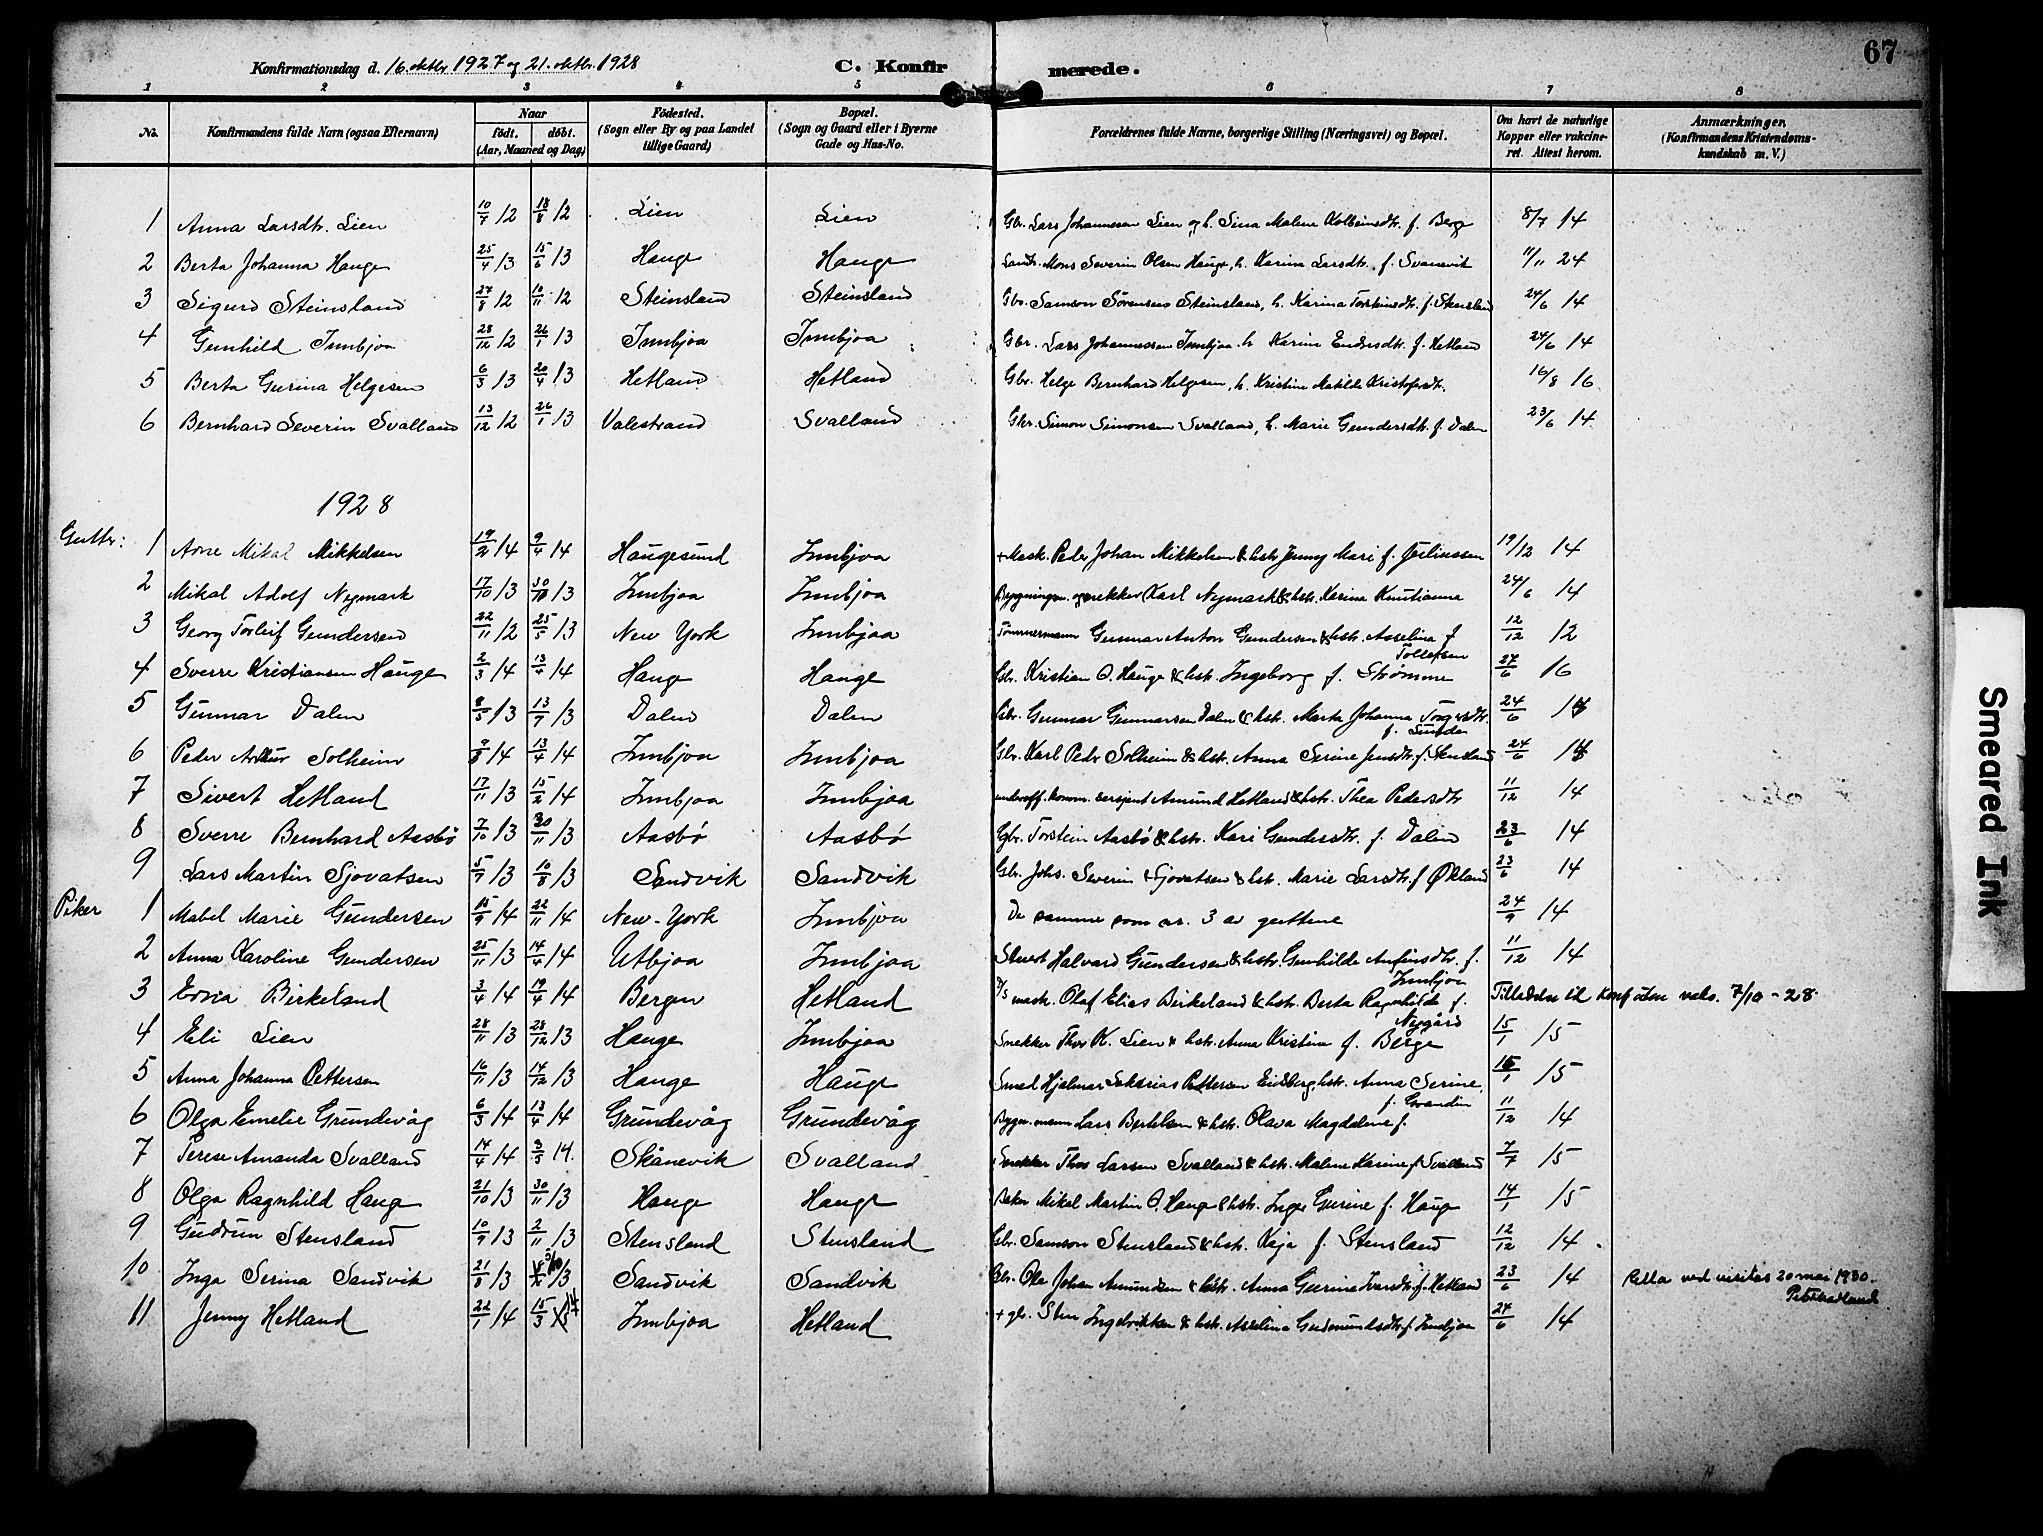 67
Konfirmationsdag d. 16. oktbr. 1927 og 21. oktbr. 1928 C. Konfir merede.
1 2 3 4 5 6 7 8
No. Konfirmandens fulde Navn (ogsaa Efternavn) Naar født. døbt. (Aar, Maaned og Dag) Fødested. (Sogn eller By og paa Landet tillige Gaard) Bopæl. (Sogn og Gaard eller i Byerne Gade og Hus-No. Forældrenes fulde Navne, borgerlige Stilling (Næringsvei) og Bopæl. Om havt de naturlige Kopper eller vakcineret. Attest herom. Anmærkninger, (Konfirmandens Kristendomskundskab m. V.)
1 Anna Larsdtr. Lien 10/7 12 18/8 12 Lien Lien Gbr. Lars Johannesen Lien og h. Sina Malene Kolbeinsdtr. f. Berge 8/7 14
2 Berta Johanna Hauge 25/4 13 15/6 13 Hauge Hauge Mons Severin Olsen Hauge, h. Karina Larsdtr. f. Svanevik 11/11 24
3 Sigurd Steinsland 27/8 12 10/11 12 Steinsland Steinsland Gbr. Samson Sørensen Steinsland, h. Karina Torsteinsdtr. f. Stensland 24/6 14
4 Gunhild Innbjoa 28/12 12 26/1 13 Innbjoa Innbjoa Gbr. Lars Johannessen Innbjoa h. Karine Endresdtr. f. Hetland 24/6 14
5 Berta Gurina Helgesen 6/3 13 20/4 13 Hetland Hetland Gbr. Helge Bernhard Helgesen, h. Kristine Matilde Kristofersdtr. 16/8 16
6 Bernhard Severin Svalland 13/12 12 26/1 13 Valestrand Svalland Gbr. Simon Simonsen Svalland, h. Marie Gundersdtr. f. Dalen 23/6 14
1928
Gutter: 1 Arne Mikal Mikkelsen 19/2 14 9/4 14 Haugesund Innbjoa + Mask. Peder Johan Mikkelsen & hstr. Jenny Mari f. 19/12 14
2 Mikal Adolf Nymark 17/10 13 30/11 13 Innbjoa Innbjoa Karl Nymark & hstr. Karina Knutianna 24/6 14
3 Georg Torleif Gundersen 22/11 12 25/5 13 New York Innbjoa Tømmermann Gunnar Anton Gundersen & hstr. Asselina f. Tollefsen 12/12 12
4 Sverre Kristiansen Hauge 2/3 14 13/4 14 Hauge Hauge Gbr. Kristian O. Hauge & hstr. Ingeborg f. Strømme 27/6 16
5 Gunnar Dalen 8/5 13 13/7 13 Dalen Dalen Gbr. Gunnar Gunnarsen Dalen & hstr. Marta Johanna f. 24/6 14
6 Peder Arthur Solheim 9/3 14 13/4 14 Innbjoa Innbjoa Gbr. Karl Peder Solheim & hstr. Anna Serine Jensdtr. f. Stensland 24/6 14
7 Sivert Hetland 17/11 13 15/2 14 Innbjoa Innbjoa underoff. komm. sersjent Amund Hetland & hstr. Thea Pedersdtr 11/12 14
8 Sverre Bernhard Aasbø 7/10 13 30/11 13 Aasbø Aasbø Gbr. Torstein Aasbø & hstr. Kari Gundersdtr. f. Dalen 23/6 14
9 Lars Martin Sjovatsen 5/7 13 10/8 13 Sandvik Sandvik Gbr. Johs. Severin Sjovatsen & hstr. Marie Larsdtr. f Økland 23/6 14
Piker 1 Mabel Marie Gundersen 15/9 14 22/11 14 New-York Innbjoa De samme som nr. 3 av guttene 24/9 14
2 Anna Karoline Gundersen 25/11 13 14/4 14 Utbjoa Innbjoa Stuert Halvard Gundersen & hstr. Gunhilde Anfinsdtr. f. Innbjoa 11/12 14
3 Erna Birkeland 3/4 14 19/4 14 Bergen Hetland D/s mask. Olaf Elias Birkeland & hstr. Berta Ragnhilde f. Nygård Tilladelse til konf uten vaks. 7/10 - 28
4 Eli Lien 28/11 13 28/12 13 Hauge Innbjoa Snekker Thor K. Lien & hstr. Anna Kristine f. Berge 15/1 15
5 Anna Johanna Pettersen 16/11 13 14/12 13 Hauge Hauge Smed Hjelmar Sakarias Pettersen hstr. Anna Serine 15/1 15
6 Olga Emelie Grundevåg 6/3 14 13/4 14 Grundevåg Grundevåg Lars Bertelsen & hstr. Olava Magdalene f. 11/12 14
7 Terese Amanda Svalland 14/4 14 3/5 14. Skånevik Svalland Snekker Thor Larsen Svalland & hstr. Malene Karine f. Svalland 7/7 15
8 Olga Ragnhild Hauge 21/10 13 30/11 13 Hauge Hauge Baker Mikal Martin O. Hauge & hstr. Inger Gurine f. Hauge 14/1 15
9 Gudrun Stensland 10/9 13 2/11 13 Stensland Stensland Gbr. Samson Stensland & hstr. Kaja f. Stensland 12/12 14
10 Inga Serina Sandvik 21/8 13 5/10 13 Sandvik Sandvik Gbr. Ole Johan Amundsen & hstr. Anna Gurine Ivarsdtr. f. Hetland 23/6 14 Retta ved visitas 20 mai 1930.
11 Jenny Hetland 22/1 14 15/3 14 Innbjoa Hetland + gbr. Sten Ingebriktsen & hstr. Asselina Gudmundsdtr. f. Innbjoa 24/6 14
Smeared Ink